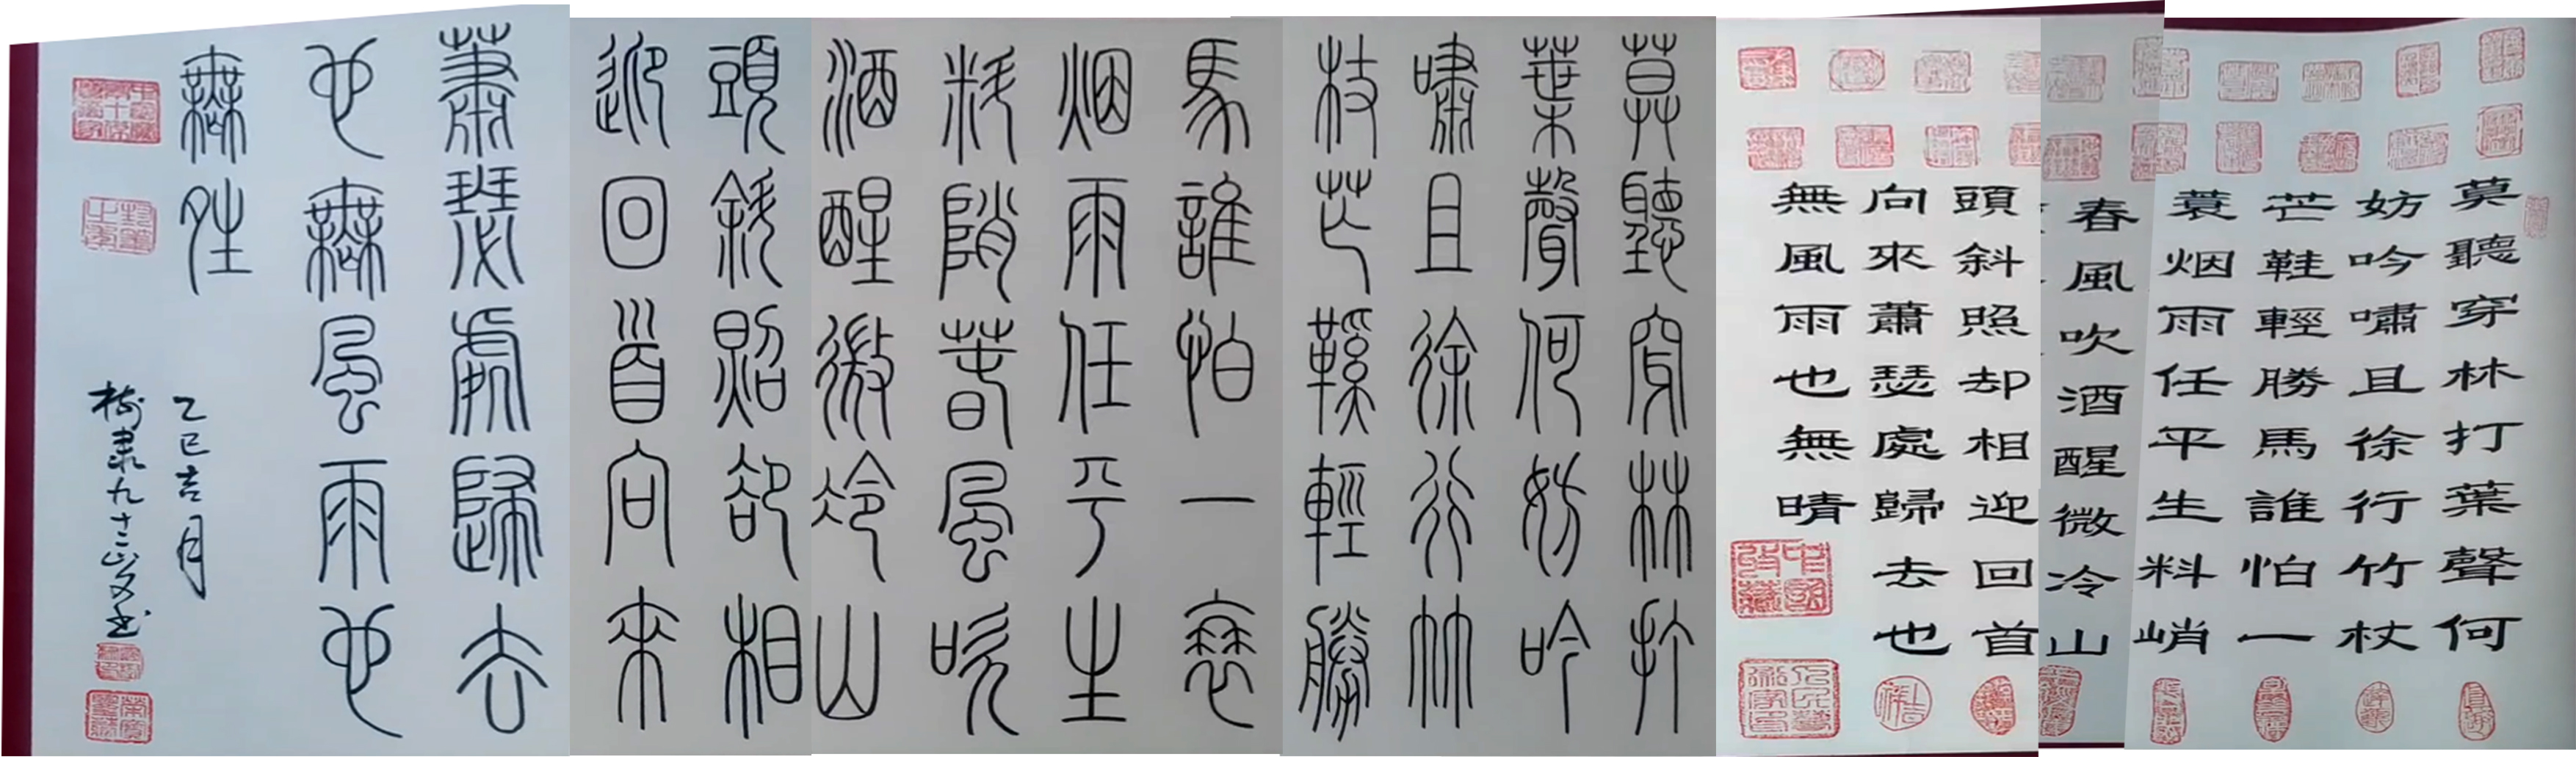 莫聽穿林打葉聲何
妨吟嘯且徐行竹杖
芒鞋輕勝馬誰怕一
蓑烟雨任平生料峭
春風吹酒醒微冷山
頭斜照却相迎回首
向來蕭瑟處歸去也
無風雨也無晴
莫聽穿林打
葉聲何妨吟
嘯且徐行竹
杖芒鞵輕勝
馬誰怕一蓑
烟雨任平生
料陗春風吹
酒醒微冷山
頭斜照卻相
迎回首向來
蕭瑟處歸去
也無風雨也
無夝
乙巳吉月
九十二歲